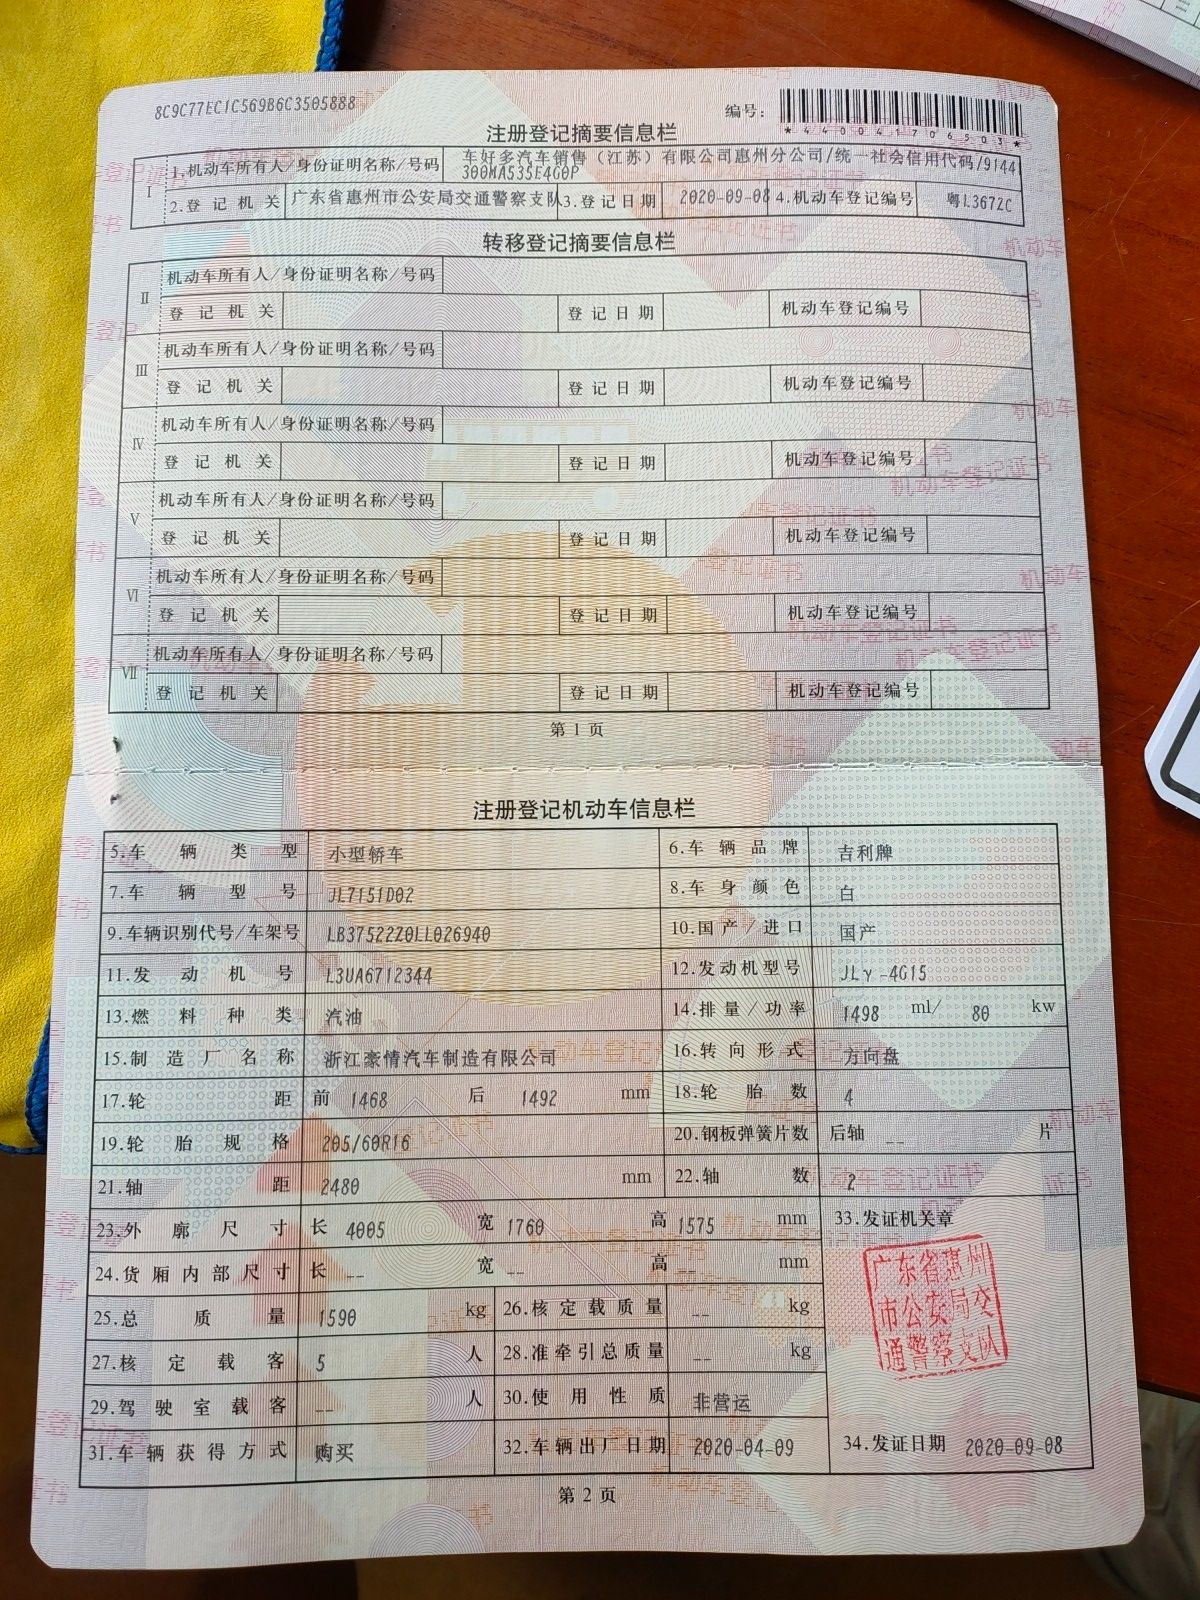 8C9C77EC1C569B6C3505888
编号：
*440041706503*
注册登记摘要信息栏
I
1.机动车所有人/身份证明名称/号码 车好多汽车销售（江苏）有限公司惠州分公司/统一社会信用代码/9144
300MA535E4G0P
2.登记机关 广东省惠州市公安局交通警察支队 3.登记日期 2020-09-08 4.机动车登记编号 粤L3672C
转移登记摘要信息栏
II
机动车所有人/身份证明名称/号码
登记机关 登记日期 机动车登记编号
III
机动车所有人/身份证明名称/号码
登记机关 登记日期 机动车登记编号
IV
机动车所有人/身份证明名称/号码
登记机关 登记日期 机动车登记编号
V
机动车所有人/身份证明名称/号码
登记机关 登记日期 机动车登记编号
VI
机动车所有人/身份证明名称/号码
登记机关 登记日期 机动车登记编号
VII
机动车所有人/身份证明名称/号码
登记机关 登记日期 机动车登记编号
第1页
注册登记机动车信息栏
5.车辆类型 小型轿车 6.车辆品牌 吉利牌
7.车辆型号 JL7151D02 8.车身颜色 白
9.车辆识别代号/车架号 LB37522Z0LL026940 10.国产/进口 国产
11.发动机号 L3UA6712344 12.发动机型号 JLγ-4G15
13.燃料种类 汽油 14.排量/功率 1498 ml/ 80 kw
15.制造厂名称 浙江豪情汽车制造有限公司 16.转向形式 方向盘
17.轮距 前 1468 后 1492 mm 18.轮胎数 4
19.轮胎规格 205/60R16 20.钢板弹簧片数 后轴 -- 片
21.轴距 2480 mm 22.轴数 2
23.外廓尺寸 长 4005 宽 1760 高 1575 mm 33.发证机关章
24.货厢内部尺寸 长 -- 宽 -- 高 -- mm
广东省惠州
市公安局交
通警察支队
25.总质量 1590 kg 26.核定载质量 -- kg
27.核定载客 5 人 28.准牵引总质量 -- kg
29.驾驶室载客 -- 人 30.使用性质 非营运
31.车辆获得方式 购买 32.车辆出厂日期 2020-04-09 34.发证日期 2020-09-08
第2页